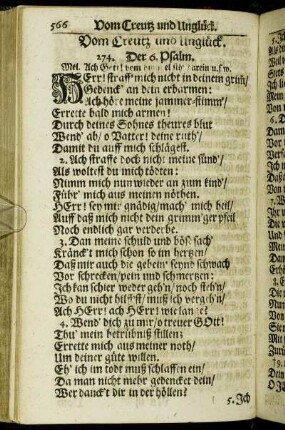 566 Vom Creutz und Unglück.
Vom Creutz und Unglück.
274. Der 6. Psalm.
Mel. Ach Gott! vom himmel sieh darein u.s.w.
HErr! straff mich nicht in deinem grim/
Gedenck' an dein erbarmen:
Ach höre meine jammer-stimm'/
Errette bald mich armen!
Durch deines Sohnes theures blut
Wend' ab/ o Vatter! deine ruth'/
Damit du auff mich schlägest.
2. Ach straffe doch nicht meine sünd'/
Als woltest du mich tödten:
Nimm mich nun wieder an zum kind'/
Führ' mich aus meinen nöthen.
HErr! sey mir gnädig/ mach' mich heil/
Auff daß mich nicht dein grimm'ger pfeil
Noch endlich gar verderbe.
3. Dan meine schuld und böß' sach'
Kränck't mich schon so im hertzen/
Daß mir auch die gebein' seynd schwach
Vor schrecken/ pein und schmertzen
Ich kan schier weder geh'n/ noch steh'n/
Wo du nicht hilffst/ muß ich vergeh'n/
Ach HErr! ach HErr! wie lange?
4. Wend' dich zu mir/ o treuer GOtt!
Thu' mein betrübniß stillen:
Errette mich aus meiner noth/
Um deiner güte willen.
Eh' ich im todt muß schlaffen ein/
Da man nicht mehr gedencket dein/
Wer danck't dir in der höllen?
5. Ich